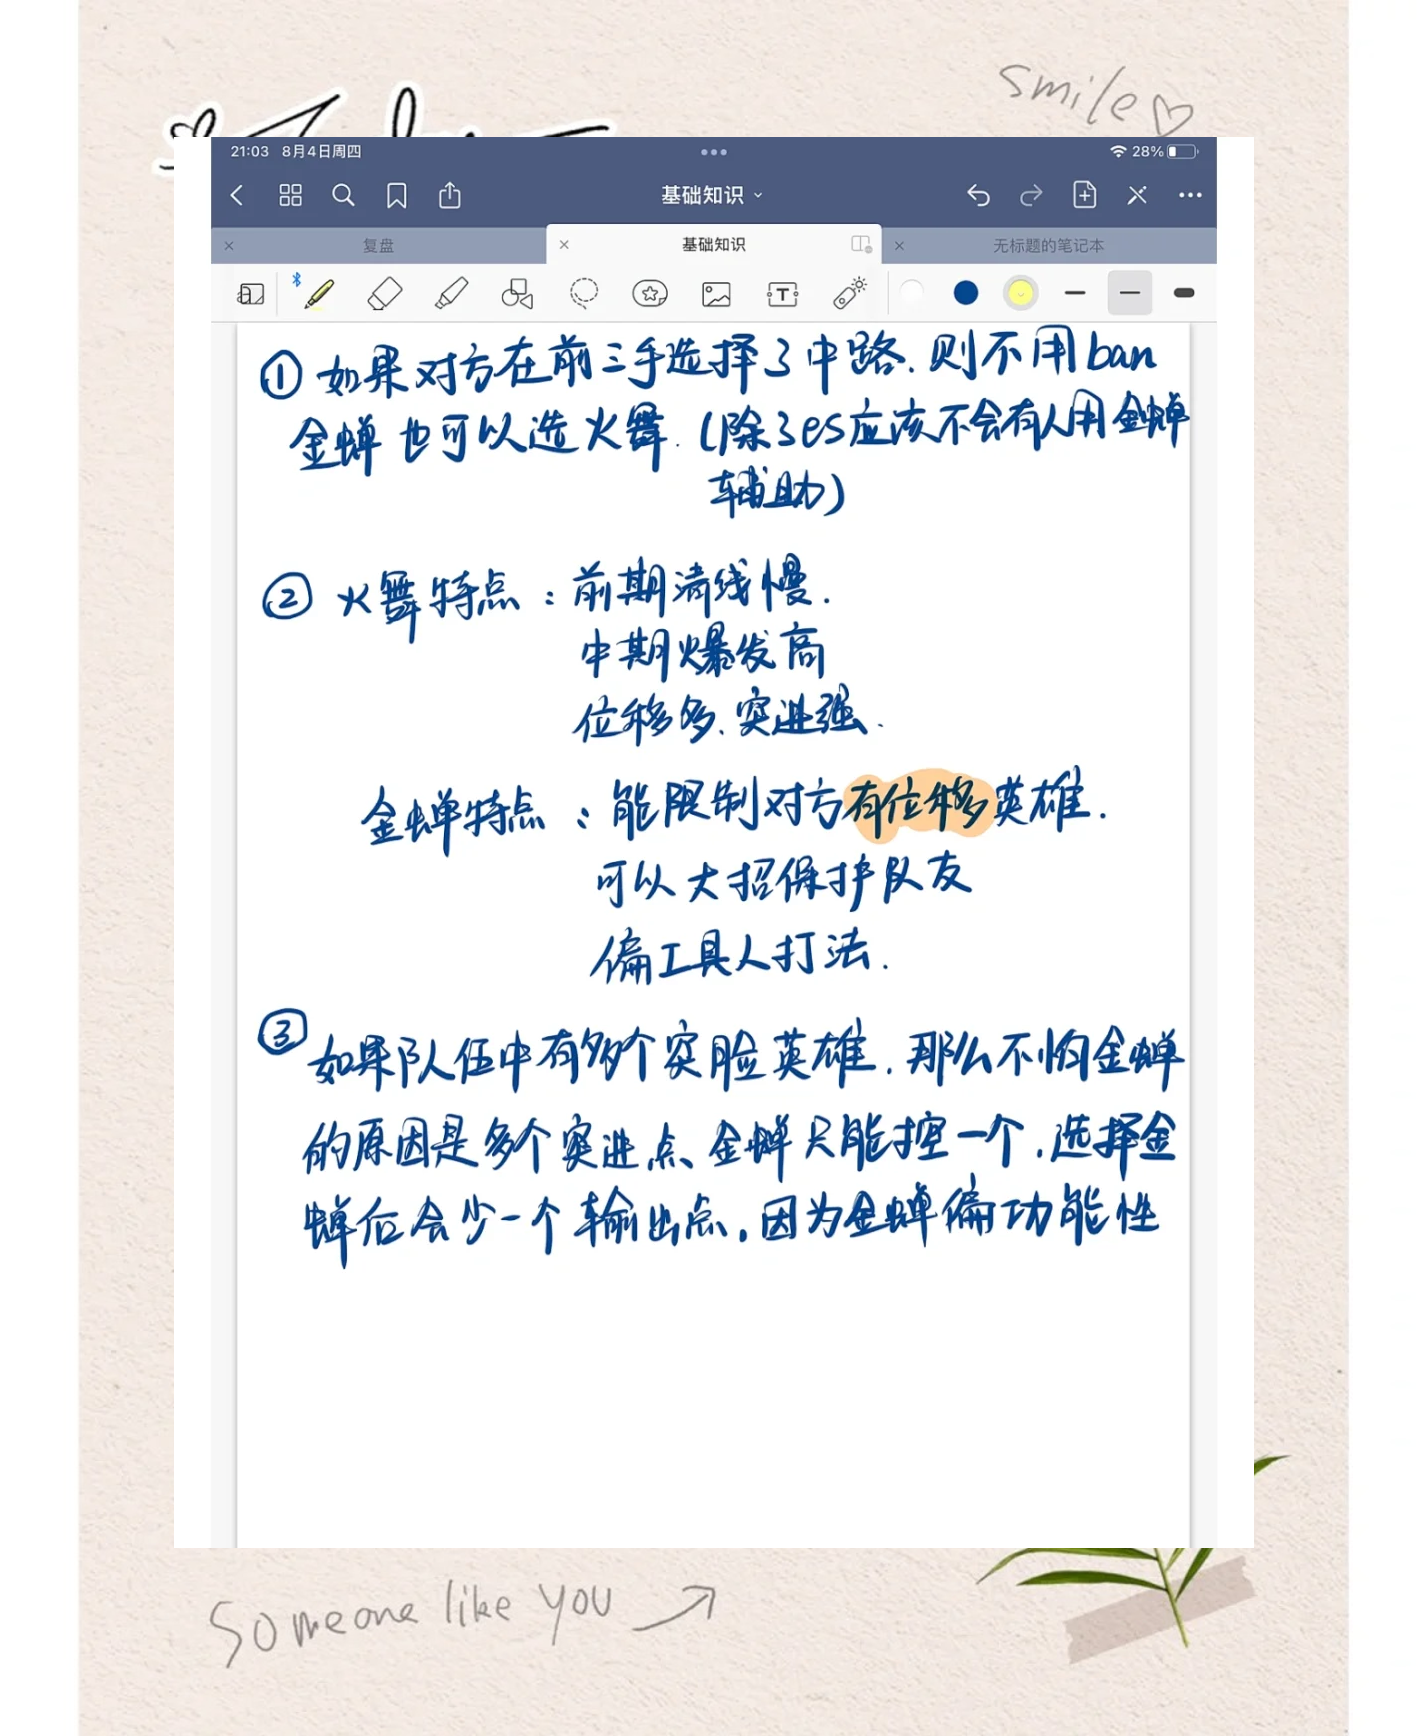 smile
21:03 8月4日周四
28%
基础知识
复盘
基础知识
无标题的笔记本
①如果对方在前三手选择了中路.则不用ban
金蝉也可以选火舞.(除了es应该不会有人用金蝉
辅助)
②火舞特点:前期清线慢.
中期爆发高
位移多、突进强.
金蝉特点:能限制对方有位移英雄.
可以大招保护队友
偏工具人打法.
③如果队伍中有多个突脸英雄.那么不怕金蝉
的原因是多个突进点、金蝉只能控一个.选择金
蝉后会少一个输出点.因为金蝉偏功能性
Someone like you